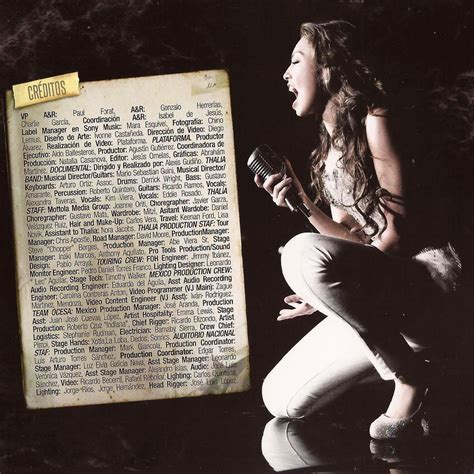 CRÉDITOS
VP A&R: Paul Forat, A&R: Gonzalo Herrerías,
Charlie García, Coordinación A&R: Isabel de Jesús,
Label Manager en Sony Music: Mara Esquivel, Fotografía: Chino
Lemus, Diseño de Arte: Ivonne Castañeda. Dirección de Video: Diego
Álvarez, Realización de Video: Plataforma, PLATAFORMA, Productor
Ejecutivo: Aldo Ballesteros, Productor: Agustín Gutiérrez, Coordinadora de
Producción: Natalia Casanova, Editor: Jesús Ornelas, Gráficas: Abrahán
Martínez. DOCUMENTAL: Dirigido y Realizado por: Alexis Gudiño. THALIA
BAND: Musical Director/Guitars: Mario Sebastian Guini, Musical Director/
Keyboards: Arturo Ortiz, Assoc. Drums: Derrick Wright, Bass: Gustavo
Amarante, Percussion: Roberto Quintero, Guitars: Ricardo Ramos, Vocals:
Alexandra Taveras, Vocals: Kim Viera, Vocals: Eddie Rosado. THALIA
STAFF: Mottola Media Group: Joanne Oriti, Choreographer: Javier Garza,
Choreographer: Gustavo Mata, Wardrobe: Mitzi, Asitant Wardrobe: Daniel
Velázquez Ruiz, Hair and Make-Up: Carlos Vera, Travel: Keenan Ford, Lisa
Novick, Assistant to Thalia: Nora Jacobs. THALIA PRODUCTION STAF: Tour
Manager: Chris Aposte, Road Manager: David Moore, ProductionManager:
Steve "Chopper" Borges, Production Manager: Abe Viera Sr, Stage
Manager: Iniaki Marcos, Production Manager: Anthony Aquilato, Pro Tools
Design: Pablo Arraya. TOURING CREW: FOH Engineer: Jimmy Ibáñez,
Monitor Engineer: Pedro Daniel Torres Franco, Lighting Designer: Leonardo
"Leo" Aguilar, Stage Tecs: Timothy Walker. MEXICO PRODUCTION CREW:
Audio Recording Engineer: Eduardo del Aguila, Asst Audio Recording
Engineer: Carolina Contreras Anton, Video Programmer (VJ Main): Zague
Martínez, Mendoza, Video Content Engineer (VJ Asst): Iván Rodríguez.
TEAM OCESA: Mexico Production Manager: José Aranda, Production
Asst: Juan José Cuevas López, Artist Hospitality: Emma Lewis, Stage
Production: Roberto Cruz "Indiana", Chief Rigger: Ricardo Elizondo, Artist
Logistics: Stephanie Rudman, Electrician: Barnaby Sierra, Crew Chief:
Stage Hands: Xolta,La Loba, Dedos, Sonrics. AUDITORIO NACIONAL
STAF: Production Manager: Mark Giancola, Production Coordinator:
Luis Arturo Torres Sánchez, Production Coordinator: Edgar Torres,
Stage Manager: Luz Elvia García Neva, Asst Stage Manager: Leonardo
Verónica Vázquez, Asst Stage Manager: Alejandro Islas, Audio: José Luis
Sánchez, Video: Ricardo Becerril, Rafael Rebollar, Lighting: Carlos Quintana,
Lighting: Jorge Ríos, Jorge Hernández, Head Rigger: José Luis López.